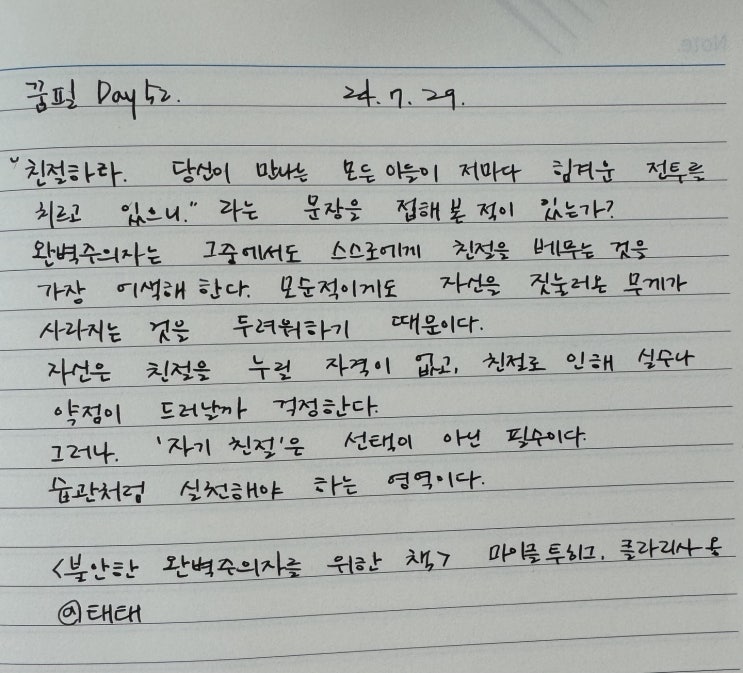 꿈필 Day 52. 24. 7. 29.
"친절하라. 당신이 만나는 모든 이들이 저마다 힘겨운 전투를
치르고 있으니." 라는 문장을 접해 본 적이 있는가?
완벽주의자는 그중에서도 스스로에게 친절을 베푸는 것을
가장 어색해 한다. 모순적이게도 자신을 짓눌러온 무게가
사라지는 것을 두려워하기 때문이다.
자신은 친절을 누릴 자격이 없고, 친절로 인해 실수나
약점이 드러날까 걱정한다.
그러나. '자기 친절'은 선택이 아닌 필수이다.
습관처럼 실천해야 하는 영역이다.
<불안한 완벽주의자를 위한 책> 마이클 투히그. 클라리사 옹
태태